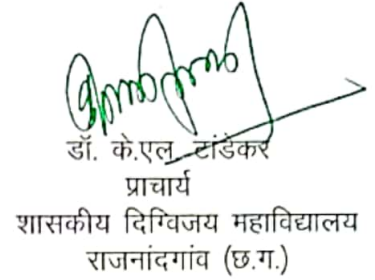 डॉ. के.एल. टांडेकर
प्राचार्य
शासकीय दिग्विजय महाविद्यालय
राजनांदगांव (छ.ग.)